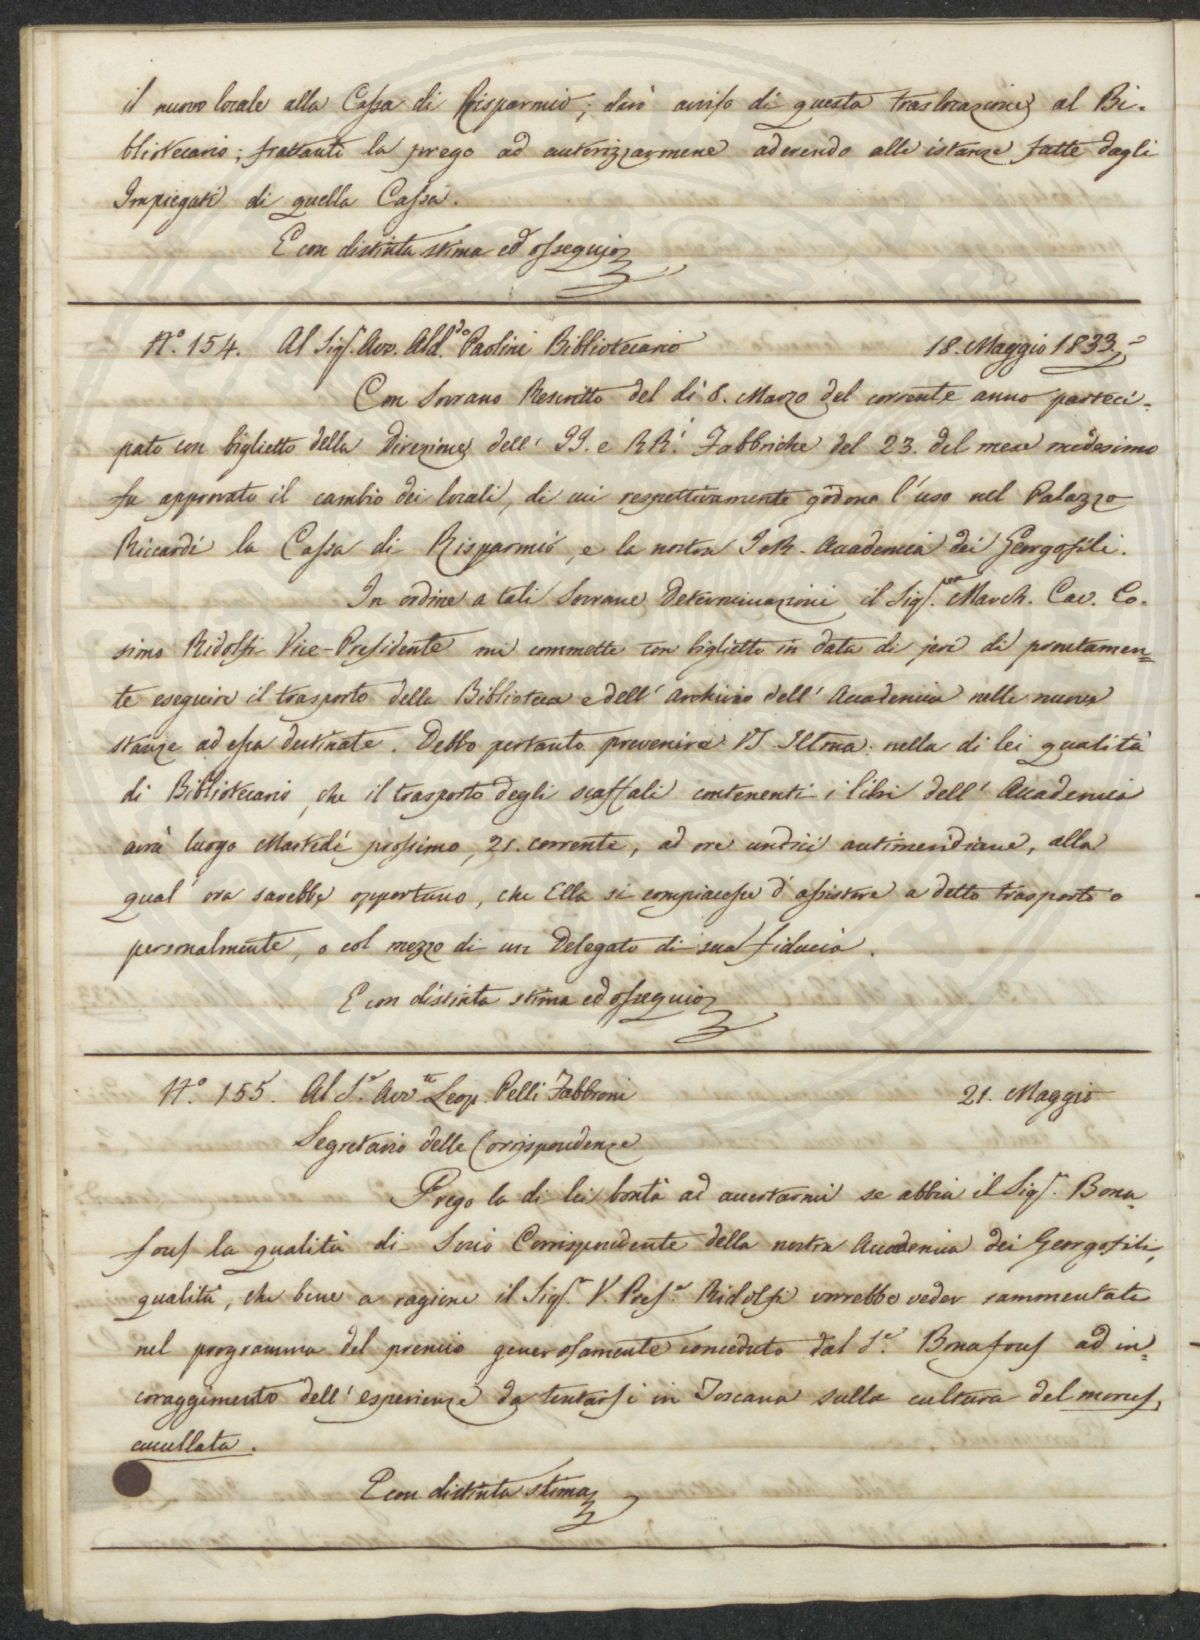 il nuovo locale alla Cassa di Risparmio; darò avviso di questa traslocazione al Bi-
bliotecario; frattanto la prego ad autorizzarmene aderendo alle istanze fatte dagli
Impiegati di quella Cassa.
E con distinta stima ed ossequio
N.° 154. Al Sig.r Avv. Ald.do Paolini Bibliotecario 18. Maggio 1833.
Con Sovrano Rescritto del dì 8. Marzo del corrente anno parteci-
pato con biglietto della Direzione dell' II. e RR. Fabbriche del 23. del mese medesimo
fu approvato il cambio dei locali, di cui respettivamente godono l'uso nel Palazzo
Riccardi la Cassa di Risparmio, e la nostra I. e R. Accademia dei Georgofili.
In ordine a tali Sovrane Determinazioni il Sig.r March. Cav. Co-
simo Ridolfi Vice-Presidente mi commette con biglietto in data di jeri di prontamen-
te eseguire il trasporto della Biblioteca e dell' Archivio dell' Accademia nelle nuove
stanze ad essa destinate. Debbo pertanto prevenire VS. Illma. nella di lei qualità
di Bibliotecario, che il trasporto degli scaffali contenenti i libri dell' Accademia
avrà luogo Martedì prossimo, 21. corrente, ad ore undici antimeridiane, alla
qual' ora sarebbe opportuno, che Ella si compiacesse d'assistere a detto trasporto o
personalmente, o col mezzo di un Delegato di sua fiducia.
E con distinta stima ed ossequio
N.° 155. Al S.r Avv.to Leop. Pelli Fabbroni 21. Maggio
Segretario delle Corrispondenze
Prego la di lei bontà ad accertarmi se abbia il Sig.r Bona-
fous la qualità di Socio Corrispondente della nostra Accademia dei Georgofili,
qualità, che bene a ragione il Sig.r V. Pres.e Ridolfi vorrebbe veder rammentata
nel programma del premio generosamente conceduto dal S.r Bonafous ad in-
coraggimento dell' esperienze da tentarsi in Toscana sulla cultura del morus
cucullata.
E con distinta stima